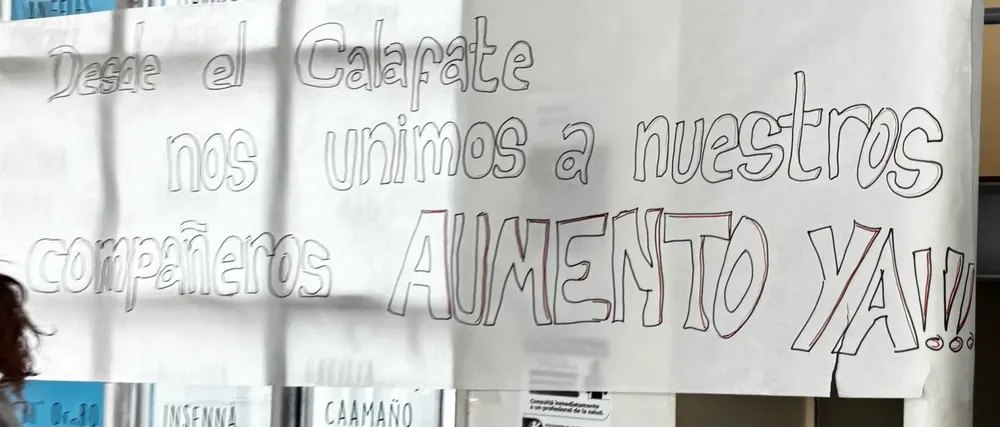 Desde el Calafate
nos unimos a nuestros
compañeros AUMENTO YA!!!
INSENNA
CAAMAÑO
Consultá inmediatamente
a un profesional de la salud.